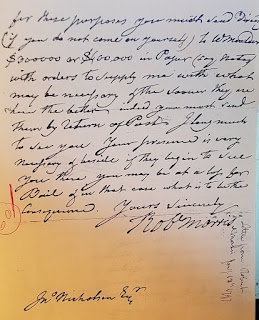 for these purposes you must send Drafts
(if you do not come on yourself) to
$300000 or $400,000 in Paper (say Notes)
with orders to supply me with what
may be necessary & the sooner they are
here the better, indeed you must send
them by Return of Post. I long much
to see you Your presence is very
necessary & beside if they begin to sue
you there you may be at a loss for
Bail & in that case what is to be the
Consequence.
Yours Sincerely
Robt Morris
Jno Nicholson Esqr